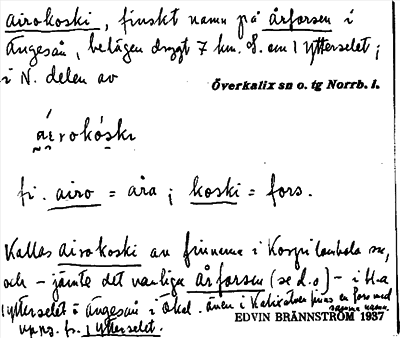 airokoski, finskt namn på årforsen i
Ängesån, belägen drygt 7 km. O. om Ytterselet;
i N. delen av
Överkalix sn o. tg Norrb. l.
áirokòski
fi. airo = åra; koski = fors.
Kallas airokoski av finnarna i Korpilombolo sn,
och – jämte det vanliga årforsen (se d.o) – i bl.a
Ytterselet o Ängesån i Ökal. även i Kalixälven finns en fors med
samma namn.
uppg. fr. Ytterselet.
EDVIN BRÄNNSTRÖM 1937